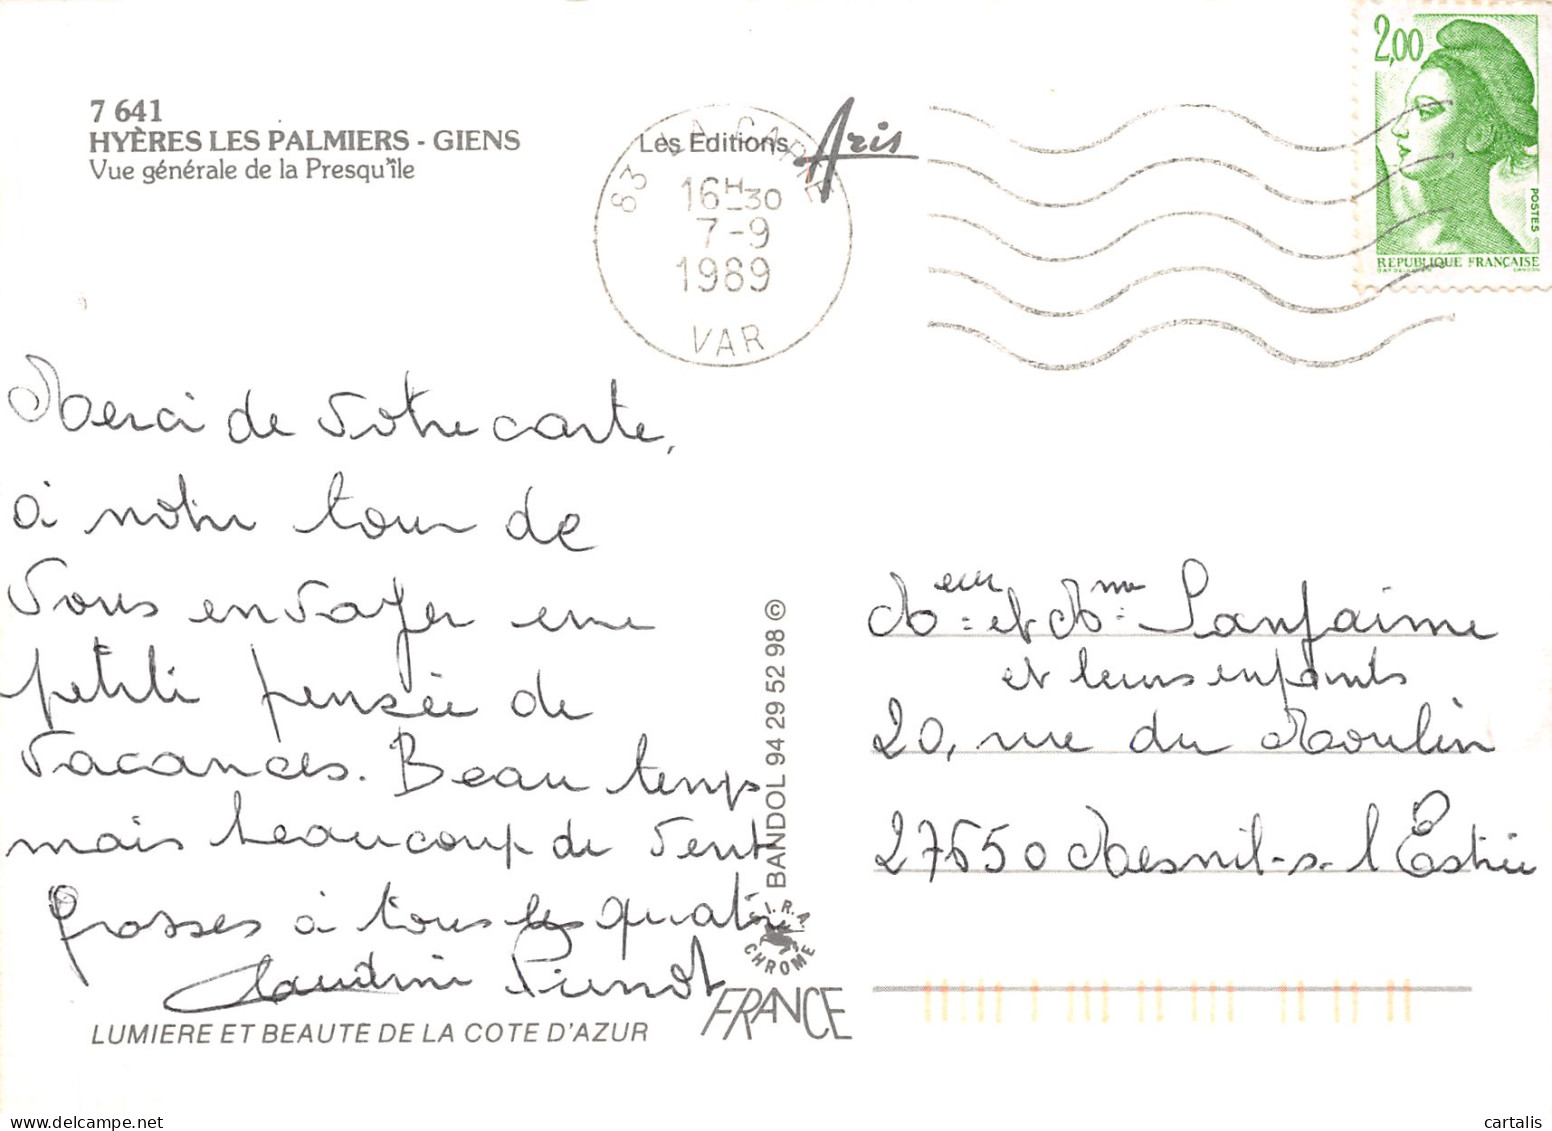 7 641
HYÈRES LES PALMIERS - GIENS
Vue générale de la Presqu'île
Les Editions Aris
83 LA CAPTE
16H30
7-9
1989
VAR
2,00
POSTES
REPUBLIQUE FRANÇAISE
Merci de votre carte,
à notre tour de
vous envoyer une
petite pensée de
vacances. Beau temps
mais beaucoup de vent
grosses à tous les quatre
Claudine Pierrot
Meur et Mme Lanfaime
et leurs enfants
20, rue du Moulin
27650 Mesnil-s-l'Estrée
BANDOL 94 29 52 98 ©
S.I.R.A. CHROME
FRANCE
LUMIERE ET BEAUTE DE LA COTE D'AZUR
Copyright delcampe.net
cartalis